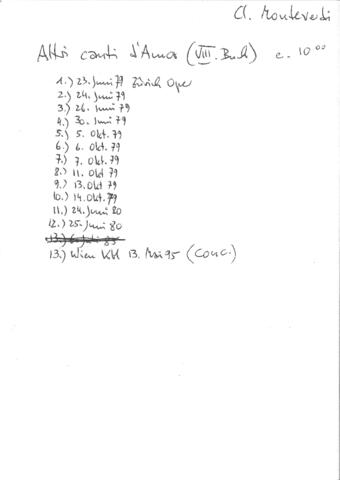 Cl. Monteverdi
Altri canti d'Amor (VIII. Buch) c. 10⁰⁰
1.) 23. Juni 79 Zürich Oper
2.) 24. Juni 79
3.) 26. Juni 79
4.) 30. Juni 79
5.) 5. Okt. 79
6.) 6. Okt. 79
7.) 7. Okt. 79
8.) 11. Okt 79
9.) 13. Okt 79
10.) 14. Okt. 79
11.) 24. Juni 80
12.) 25. Juni 80
13.) 6. Juli 85
13.) Wien KH 13. Mai 95 (Conc.)